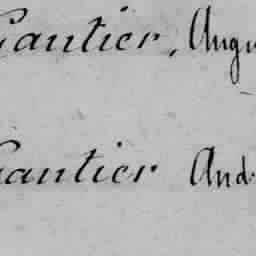 Gautier, Augu
Gautier And